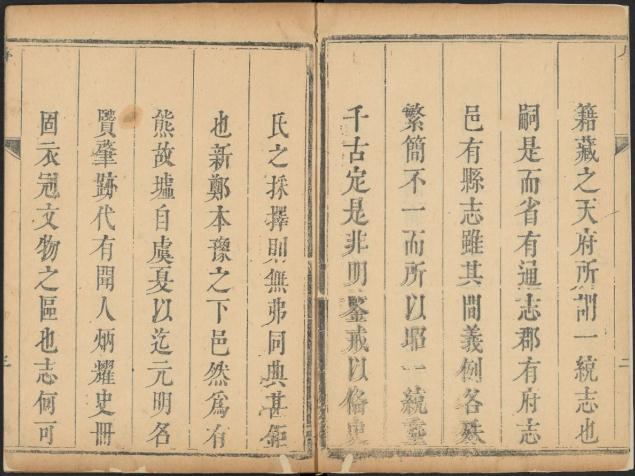 籍藏之天府所謂一統志也
嗣是而省有通志郡有府志
邑有縣志雖其間義例各殊
繁簡不一而所以昭一統羣
千古定是非明鑒戒以俻史
氏之採擇則無弗同典甚鉅
也新鄭本豫之下邑然為有
熊故墟自虞夏以迄元明名
賢肇跡代有聞人炳燿史冊
固衣冠文物之區也志何可
二
三